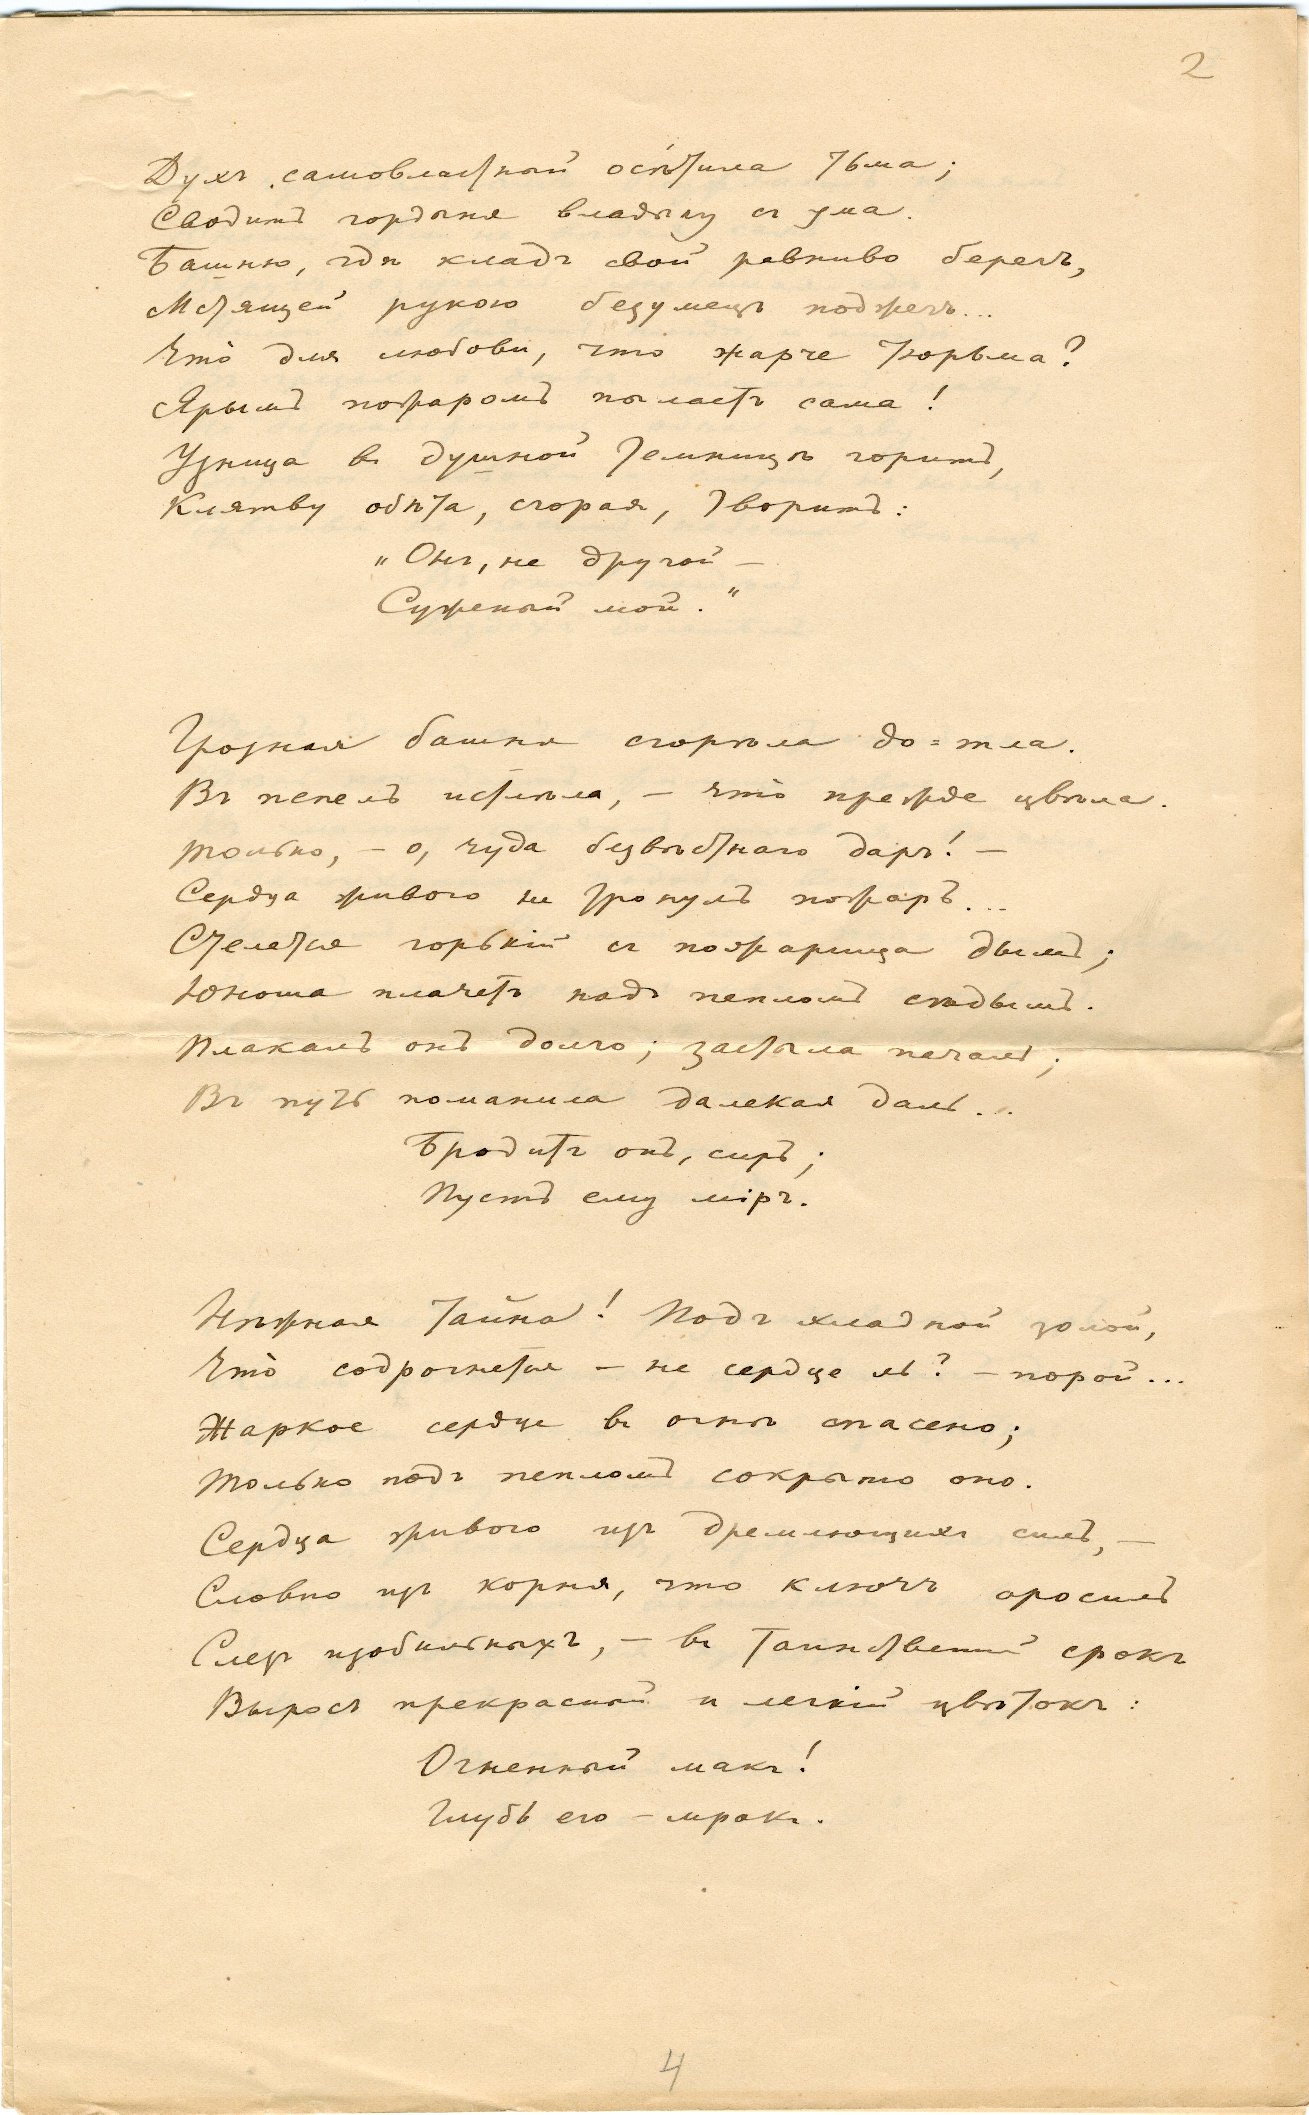 2
Духъ самовластный осѣтила тьма;
Сводитъ гордыня владыку съ ума.
Башню, гдѣ кладъ свой ревниво берегъ,
Мстящей рукою безумецъ поджегъ...
Что̀ для любови, что̀ жарче тюрьма?
Ярымъ пожаромъ пылаетъ сама!
Узница въ душной темницѣ горитъ,
Клятву обѣта, сгорая, творитъ:
„Онъ, не другой —
Суженый мой."
Грозная башня сгорѣла до-тла.
Въ пепелъ истлѣла, — что̀ прежде цвѣла.
Только, — о, чуда безвѣстнаго даръ! —
Сердца живого не тронулъ пожаръ...
Стелется горькій съ пожарища дымъ;
Юноша плачетъ надъ пепломъ сѣдымъ.
Плакалъ онъ долго; застыла печаль;
Въ путь поманила далекая даль...
Бродитъ онъ, сиръ;
Пустъ ему міръ.
Нѣжная тайна! Подъ хладной золой,
Что̀ содрогнется — не сердце ль? — порой...
Жаркое сердце въ огнѣ спасено;
Только подъ пепломъ сокрыто оно.
Сердца живого изъ дремлющихъ силъ, —
Словно изъ корня, что ключъ оросилъ
Слезъ изобильныхъ, — въ таинственный срокъ
Выросъ прекрасный и легкій цвѣтокъ:
Огненный макъ!
Глубь его — мракъ.
4